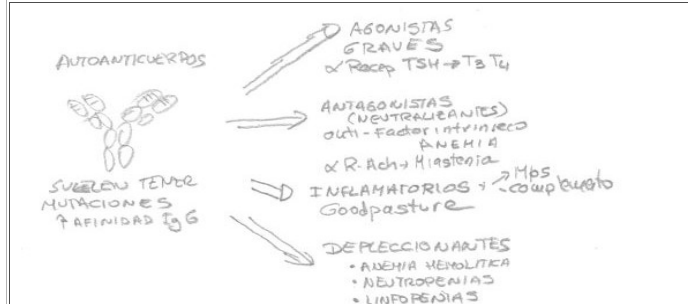 AUTOANTICUERPOS
SUELEN TENER
MUTACIONES
↑ AFINIDAD IgG
AGONISTAS
GRAVES
α Recep TSH → T3 T4
ANTAGONISTAS
(NEUTRALIZANTES)
anti-Factor intrinseco
ANEMIA
α R-Ach → Miastenia
INFLAMATORIOS → Mps
complemento
Goodpasture
DEPLECCIONANTES
• ANEMIA HEMOLITICA
• NEUTROPENIAS
• LINFOPENIAS